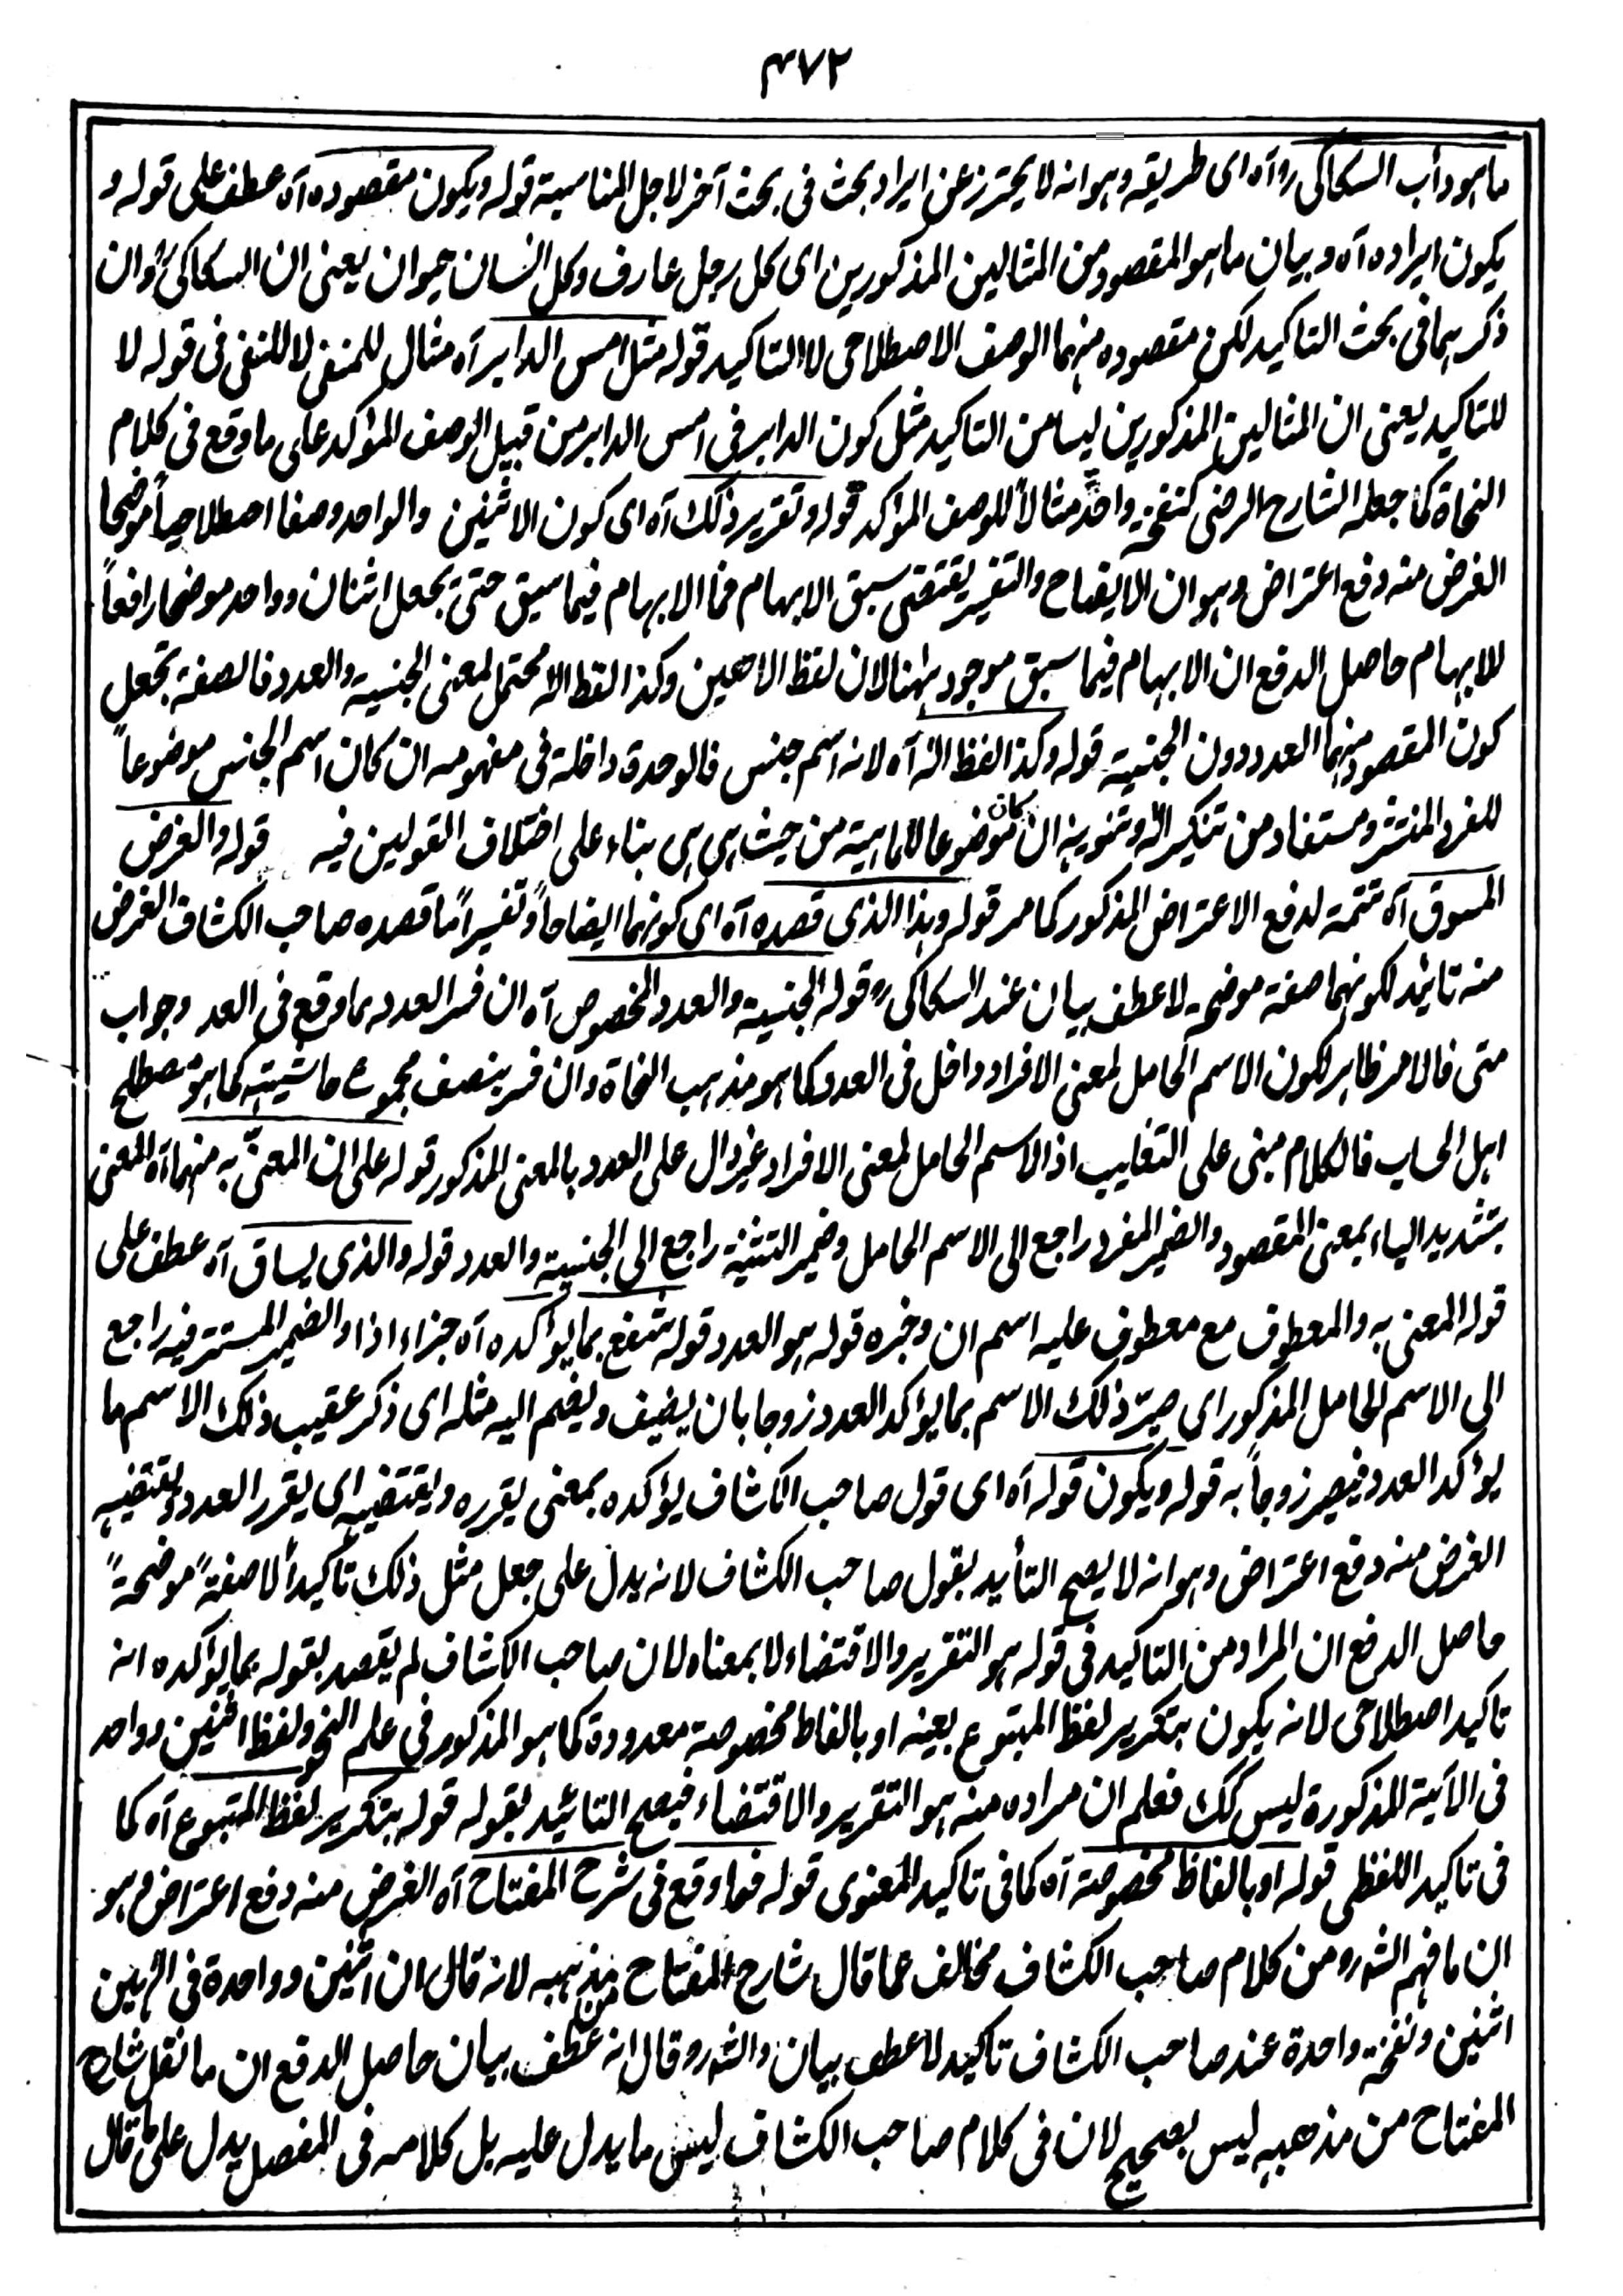 ٤٧٢
ما هو دأب السكاكي رو آه اى طريقه وهو انه لا يحترز عن ايراد بحث فى بحث آخر لاجل المناسبة قوله ويكون مقصوده آه عطف على قوله و
يكون ايراده آه وبيان ما هو المقصود من المثالين المذكورين اى كل رجل عارف وكل انسان حيوان يعنى ان السكاكى وان
ذكرهما فى بحث التاكيد لكن مقصوده منهما الوصف الاصطلاحى لا التاكيد قوله مثل امس الدابر آه مثال للمنفى لا للنفى فى قوله لا
للتاكيد يعنى ان المثالين المذكورين ليسا من التاكيد مثل كون الدابر فى امس الدابر من قبيل الوصف المؤكد على ما وقع فى كلام
النحاة كما جعله الشارح الرضى كنفخة واحدة مثالاً للوصف المؤكد قوله وتقرير ذلك آه اى كون الاثنين والواحد وصفا اصطلاحياً موضحا
الغرض منه دفع اعتراض وهو ان الايضاح والتفسير يقتضى سبق الابهام فما الابهام فيما سبق حتى يجعل اثنان وواحد موضحا رافعاً
للابهام حاصل الدفع ان الابهام فيما سبق موجود ههنا لان لفظ الٰهين وكذا لفظ الٰه محتمل لمعنى الجنسية والعدد فالصفة تجعل
كون المقصود منهما العدد دون الجنسية قوله وكذا لفظ الٰه آه لانه اسم جنس فالوحدة داخلة فى مفهومه ان كان اسم الجنس موضوعاً
للفرد المنتشر ومستفاد من تنكير الٰه وتنوينه ان كان موضوعا للماهية من حيث هى هى بناء على اختلاف القولين فيه قوله والغرض
المسوق آه تتمة لدفع الاعتراض المذكور كما مر قوله وهذا الذى قصده آه اى كونهما ايضاحاً وتفسيراً ما قصده صاحب الكشاف الغرض
منه تائيد لكونهما صفة موضحة لا عطف بيان عند السكاكى قوله الجنسية والعدد المخصوص آه ان فسر العدد بما وقع فى العد وجواب
متى فالامر ظاهر لكون الاسم الحامل لمعنى الافراد داخل فى العدد كما هو مذهب النحاة وان فسر بنصف مجموع حاشيتيه كما هو مصطلح
اهل الحساب فالكلام مبنى على التغليب اذ الاسم الحامل لمعنى الافراد غير دال على العدد بالمعنى المذكور قوله على ان المعنىّ به منهما آه المعنى
بتشديد الياء بمعنى المقصود والضمير المفرد راجع الى الاسم الحامل وضمير التثنية راجع الى الجنسية والعدد قوله والذى يساق آه عطف على
قوله المعنى به والمعطوف مع معطوف عليه اسم ان وخبره قوله هو العدد قوله شفع بما يؤكده آه جزاء اذا والضمير المستتر فيه راجع
الى الاسم الحامل المذكور اى صيّر ذلك الاسم بما يؤكد العدد زوجا بان يضيف ويضم اليه مثله اى ذكر عقيب ذلك الاسم ما
يؤكد العدد فيصير زوجاً به قوله ويكون قوله آه اى قول صاحب الكشاف يؤكده بمعنى يقرره ويقتضيه اى يقرر العدد ويقتضيه
الغرض منه دفع اعتراض وهو انه لا يصح التأيد بقول صاحب الكشاف لانه يدل على جعل مثل ذلك تأكيداً لا صفة موضحة
حاصل الدفع ان المراد من التاكيد فى قوله هو التقرير والاقتضاء لا بمعناه لان صاحب الكشاف لم يقصد بقوله بما يؤكده انه
تاكيد اصطلاحى لانه يكون بتكرير لفظ المتبوع بعينه او بالفاظ مخصوصة معدودة كما هو المذكور فى علم النحو ولفظ اثنين وواحد
فى الآية المذكورة ليس كك فعلم ان مراده منه هو التقرير والاقتضاء فيصح التائيد بقوله قوله بتكرير لفظ المتبوع آه كما
فى تاكيد اللفظى قوله او بالفاظ مخصوصة آه كما فى تاكيد المعنوى قوله فما وقع فى شرح المفتاح آه الغرض منه دفع اعتراض وهو
ان ما فهم الش رو من كلام صاحب الكشاف مخالف عما قال شارح المفتاح من مذهبه لانه قال ان اثنين وواحدة فى الٰهين
اثنين ونفخة واحدة عند صاحب الكشاف تاكيد لا عطف بيان والش رو قال انه عطف بيان حاصل الدفع ان ما نقل شارح
المفتاح من مذهبه ليس بصحيح لان فى كلام صاحب الكشاف ليس ما يدل عليه بل كلامه فى المفصل يدل على ما قال